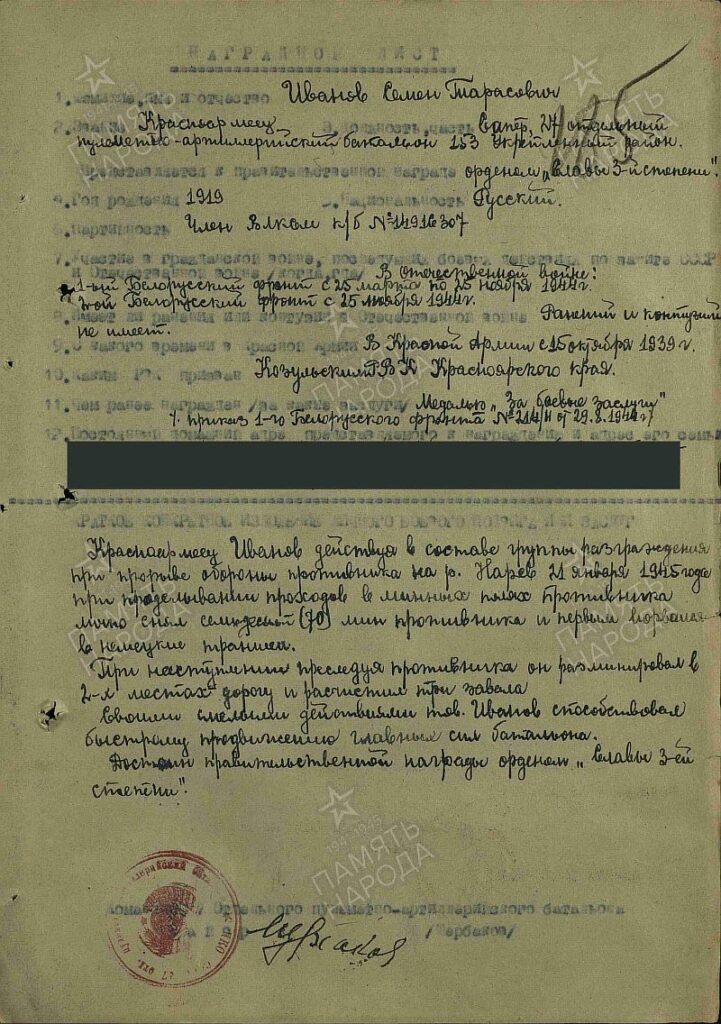 НАГРАДНОЙ ЛИСТ
1. Фамилия, имя и отчество Иванов Семен Тарасович
2. Звание Красноармеец 3. Должность, часть Сапер, 27 отдельный
пулеметно-артиллерийский батальон 153 Укрепленный район.
Представляется к правительственной награде орденом „Славы 3-й степени".
4. Год рождения 1919 Национальность Русский.
6. Партийность Член ВЛКСМ к/б №14916307
7. Участие в гражданской войне, последующих боевых действиях по защите СССР
и Отечественной войне /когда, где/ В Отечественной войне:
1-ый Белорусский фронт с 25 марта по 25 ноября 1944г.
2-ой Белорусский фронт с 25 ноября 1944г.
8. Имеет ли ранения или контузии в Отечественной войне Ранений и контузий
не имеет.
9. С какого времени в Красной Армии В Красной Армии с 15 октября 1939 г.
10. Каким РВК призван Козульским РВК Красноярского края.
11. Чем ранее награжден /за какие заслуги/ Медалью „За боевые заслуги"
приказ 1-го Белорусского фронта №214/н от 29.8.1944г/
12. Постоянный домашний адрес представляемого к награждению и адрес его семьи
КРАТКОЕ КОНКРЕТНОЕ ИЗЛОЖЕНИЕ ЛИЧНОГО БОЕВОГО ПОДВИГА ИЛИ ЗАСЛУГ
Красноармеец Иванов действуя в составе группы разграждения
при прорыве обороны противника на р. Нарев 21 января 1945 года
при проделывании проходов в минных полях противника
лично снял семьдесят (70) мин противника и первым ворвался
в немецкие траншеи.
При наступлении преследуя противника он разминировал в
2-х местах дорогу и расчистил три завала
Своими смелыми действиями тов. Иванов способствовал
быстрому продвижению главных сил батальона.
Достоин правительственной награды орденом „Славы 3-ей
степени".
ПАМЯТЬ
НАРОДА
Командир Отдельного пулеметно-артиллерийского батальона
/Щербаков/